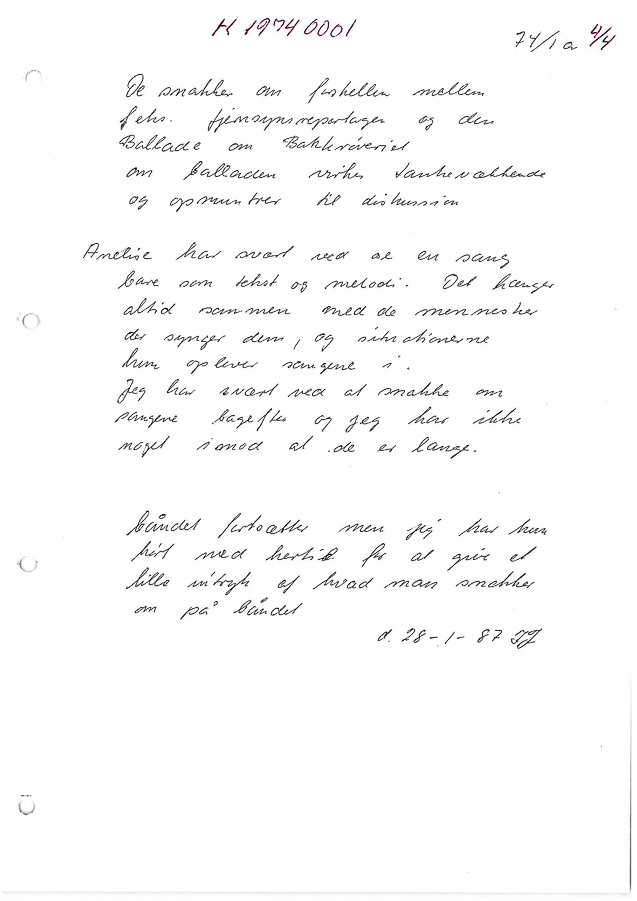 K 1974 0001
74/1a 4/4
De snakker om forskellen mellem
f.eks. fjernsynsreportager og den
Ballade om Bakkrøveriet
om balladen virker tankevækkende
og opmuntrer til diskussion
Anelise har svært ved at en sang
bare som tekst og melodi. Det hænger
altid sammen med de mennesker
der synger dem, og situationerne
hun oplever sangene i.
Jeg har svært ved at snakke om
sangene bagefter og jeg har ikke
noget imod at de er lange.
båndet fortsætter men jeg har kun
hørt ned hertil for at give et
lille indtryk af hvad man snakker
om på båndet
d. 28-1-87